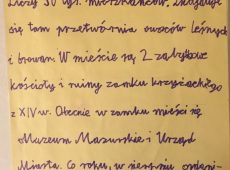 Liczy 30 tyś. mieszkańców. Znajduje
się tam przetwórnia owoców leśnych
i browar. W mieście są 2 zabytkowe
kościoły i ruiny zamku krzyżackiego
z XIV w. Obecnie w zamku mieści się
Muzeum Mazurskie i Urząd
Miasta. Co roku, w sierpniu